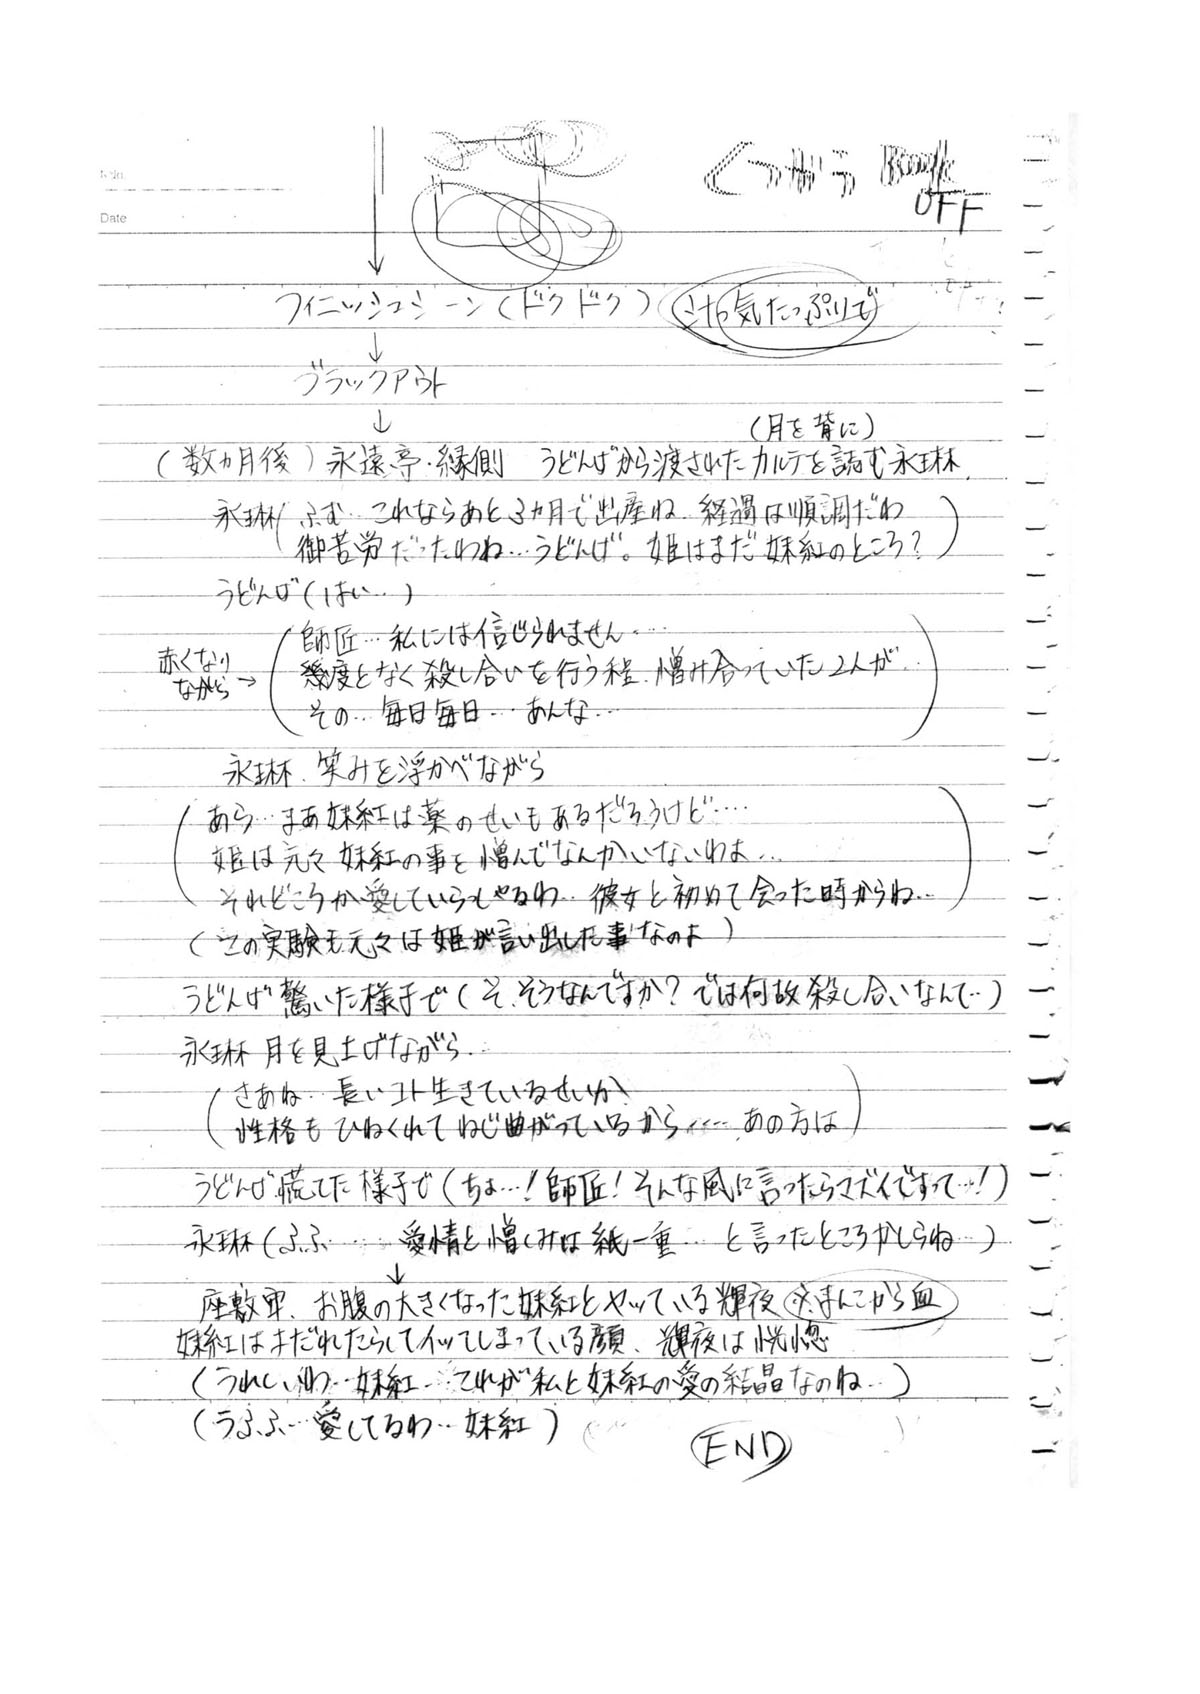 No.
Date
OFF
フィニッシュシーン(ドクドク) 気たっぷりで
↓
ブラックアウト
↓
(月を背に)
(数ヵ月後)永遠亭・縁側 うどんげから渡されたカルテを読む永琳
永琳(ふむ…これならあと3ヵ月で出産ね 経過は順調だわ
御苦労だったわね…うどんげ。姫はまだ妹紅のところ?)
うどんげ(はい…)
赤くなり
ながら→
(師匠…私には信じられません…
幾度となく殺し合いを行う程、憎み合っていた2人が…
その…毎日毎日…あんな…)
永琳、笑みを浮かべながら
(あら…まあ妹紅は薬のせいもあるだろうけど…
姫は元々妹紅の事を憎んでなんかいないわよ…
それどころか愛していらっしゃるわ…彼女と初めて会った時からね…)
(この実験も元々は姫が言い出した事なのよ)
うどんげ驚いた様子で(そ、そうなんですか?では何故殺し合いなんて…)
永琳 月を見上げながら…
(さあね…長いコト生きているせいか、
性格もひねくれてねじ曲がっているから……あの方は)
うどんげ慌てた様子で(ちょ…!師匠!そんな風に言ったらマズイですって…!)
永琳(ふふ……愛情と憎しみは紙一重…と言ったところかしらね…)
↓
座敷牢、お腹の大きくなった妹紅とヤッている輝夜 ※まんこから血
妹紅はまだれたらしてイッてしまっている顔、輝夜は恍惚
(うれしいわ…妹紅…これが私と妹紅の愛の結晶なのね…)
(うふふ…愛してるわ…妹紅)
END